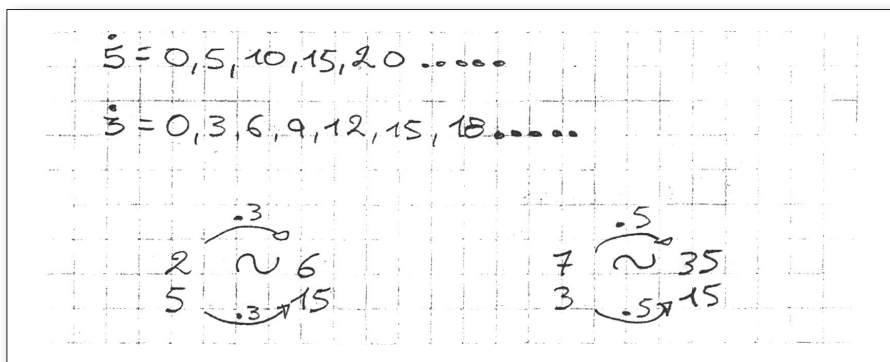 5̇ = 0,5,10,15,20 .....
3̇ = 0,3,6,9,12,15,18.....
.3 .5
2 ~ 6 7 ~ 35
5 .3 15 3 .5 15